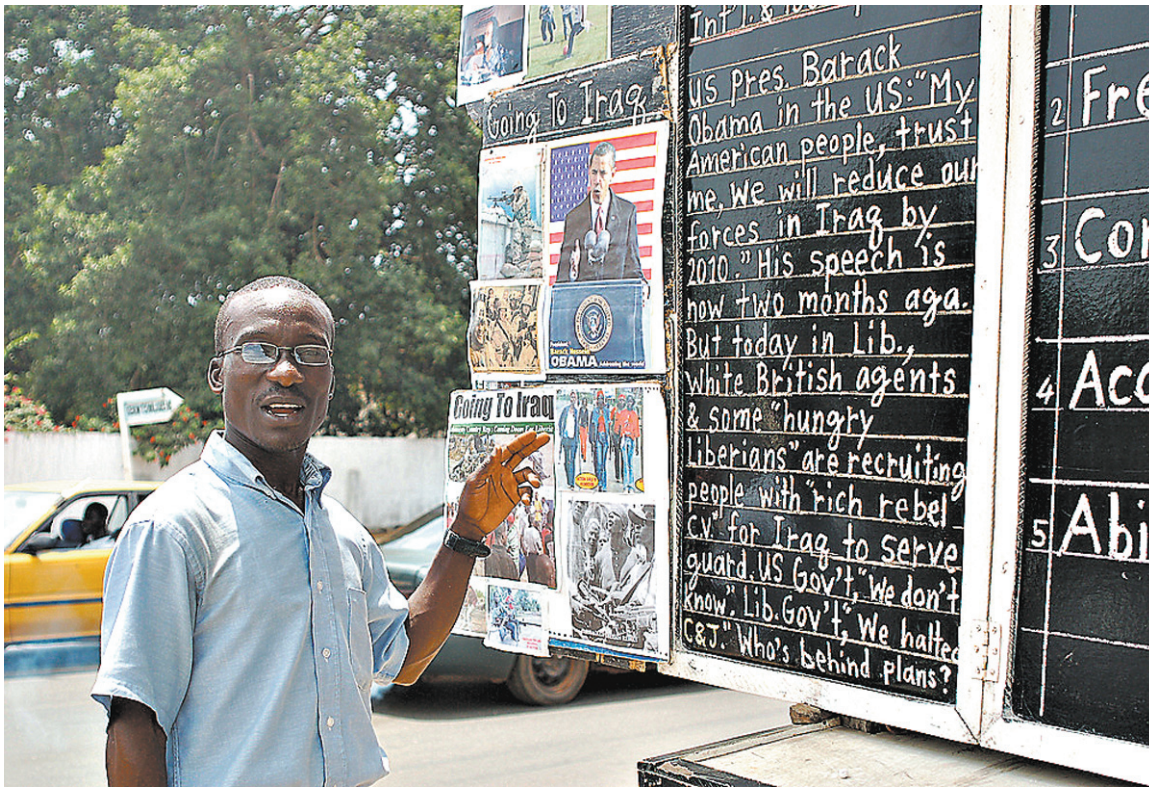 Going To Iraq
President
Barack Hussein
OBAMA Addressing the world
Going To Iraq
Int'l. &
US Pres. Barack
Obama in the US: "My
American people, trust
me, We will reduce our
forces in Iraq by
2010." His speech is
now two months aga.
But today in Lib.,
White British agents
& some "hungry
Liberians" are recruiting
people with "rich rebel
C.V." for Iraq to serve
guard. US Gov't, "We don't
know". Lib. Gov't", We halted
C&J." Who's behind plans?
2 Fre
3 Cor
4 Acc
5 Abi